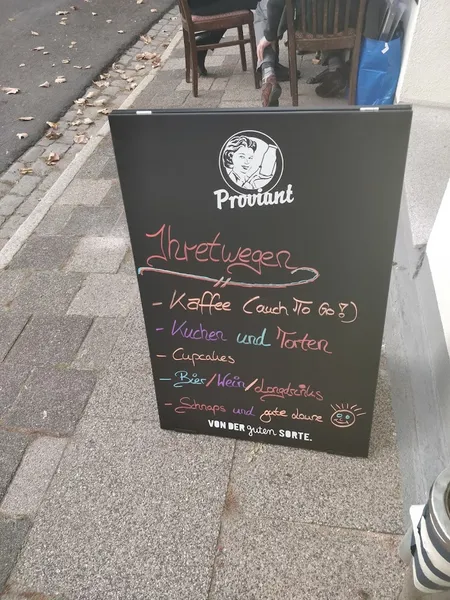 Proviant
Ihretwegen
- Kaffee (auch To Go!)
- Kuchen und Torten
- Cupcakes
- Bier/Wein/Longdrinks
- Schnaps und gute Laune
VON DER guten SORTE.